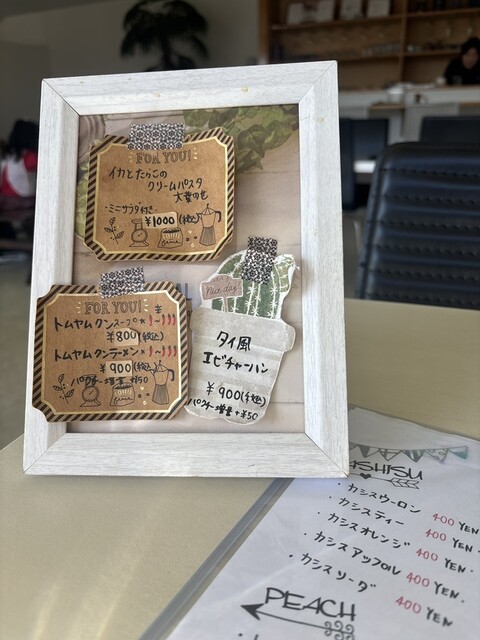 FOR YOU!
イカとたらこの
クリームパスタ
大葉のせ
・ミニサラダ付き
¥1000(税込)
FOR YOU!
トムヤムクンスープ
¥800(税込)
トムヤムクンラーメン
¥900(税込)
パクチー増量 +¥50
Nice day
タイ風
エビチャーハン
¥900(税込)
パクチー増量 +¥50
SHISU
・カシスウーロン 400 YEN
・カシスティー 400 YEN.
・カシスオレンジ 400 YEN.
・カシスアップル 400 YEN.
・カシスソーダ 400 YEN
PEACH